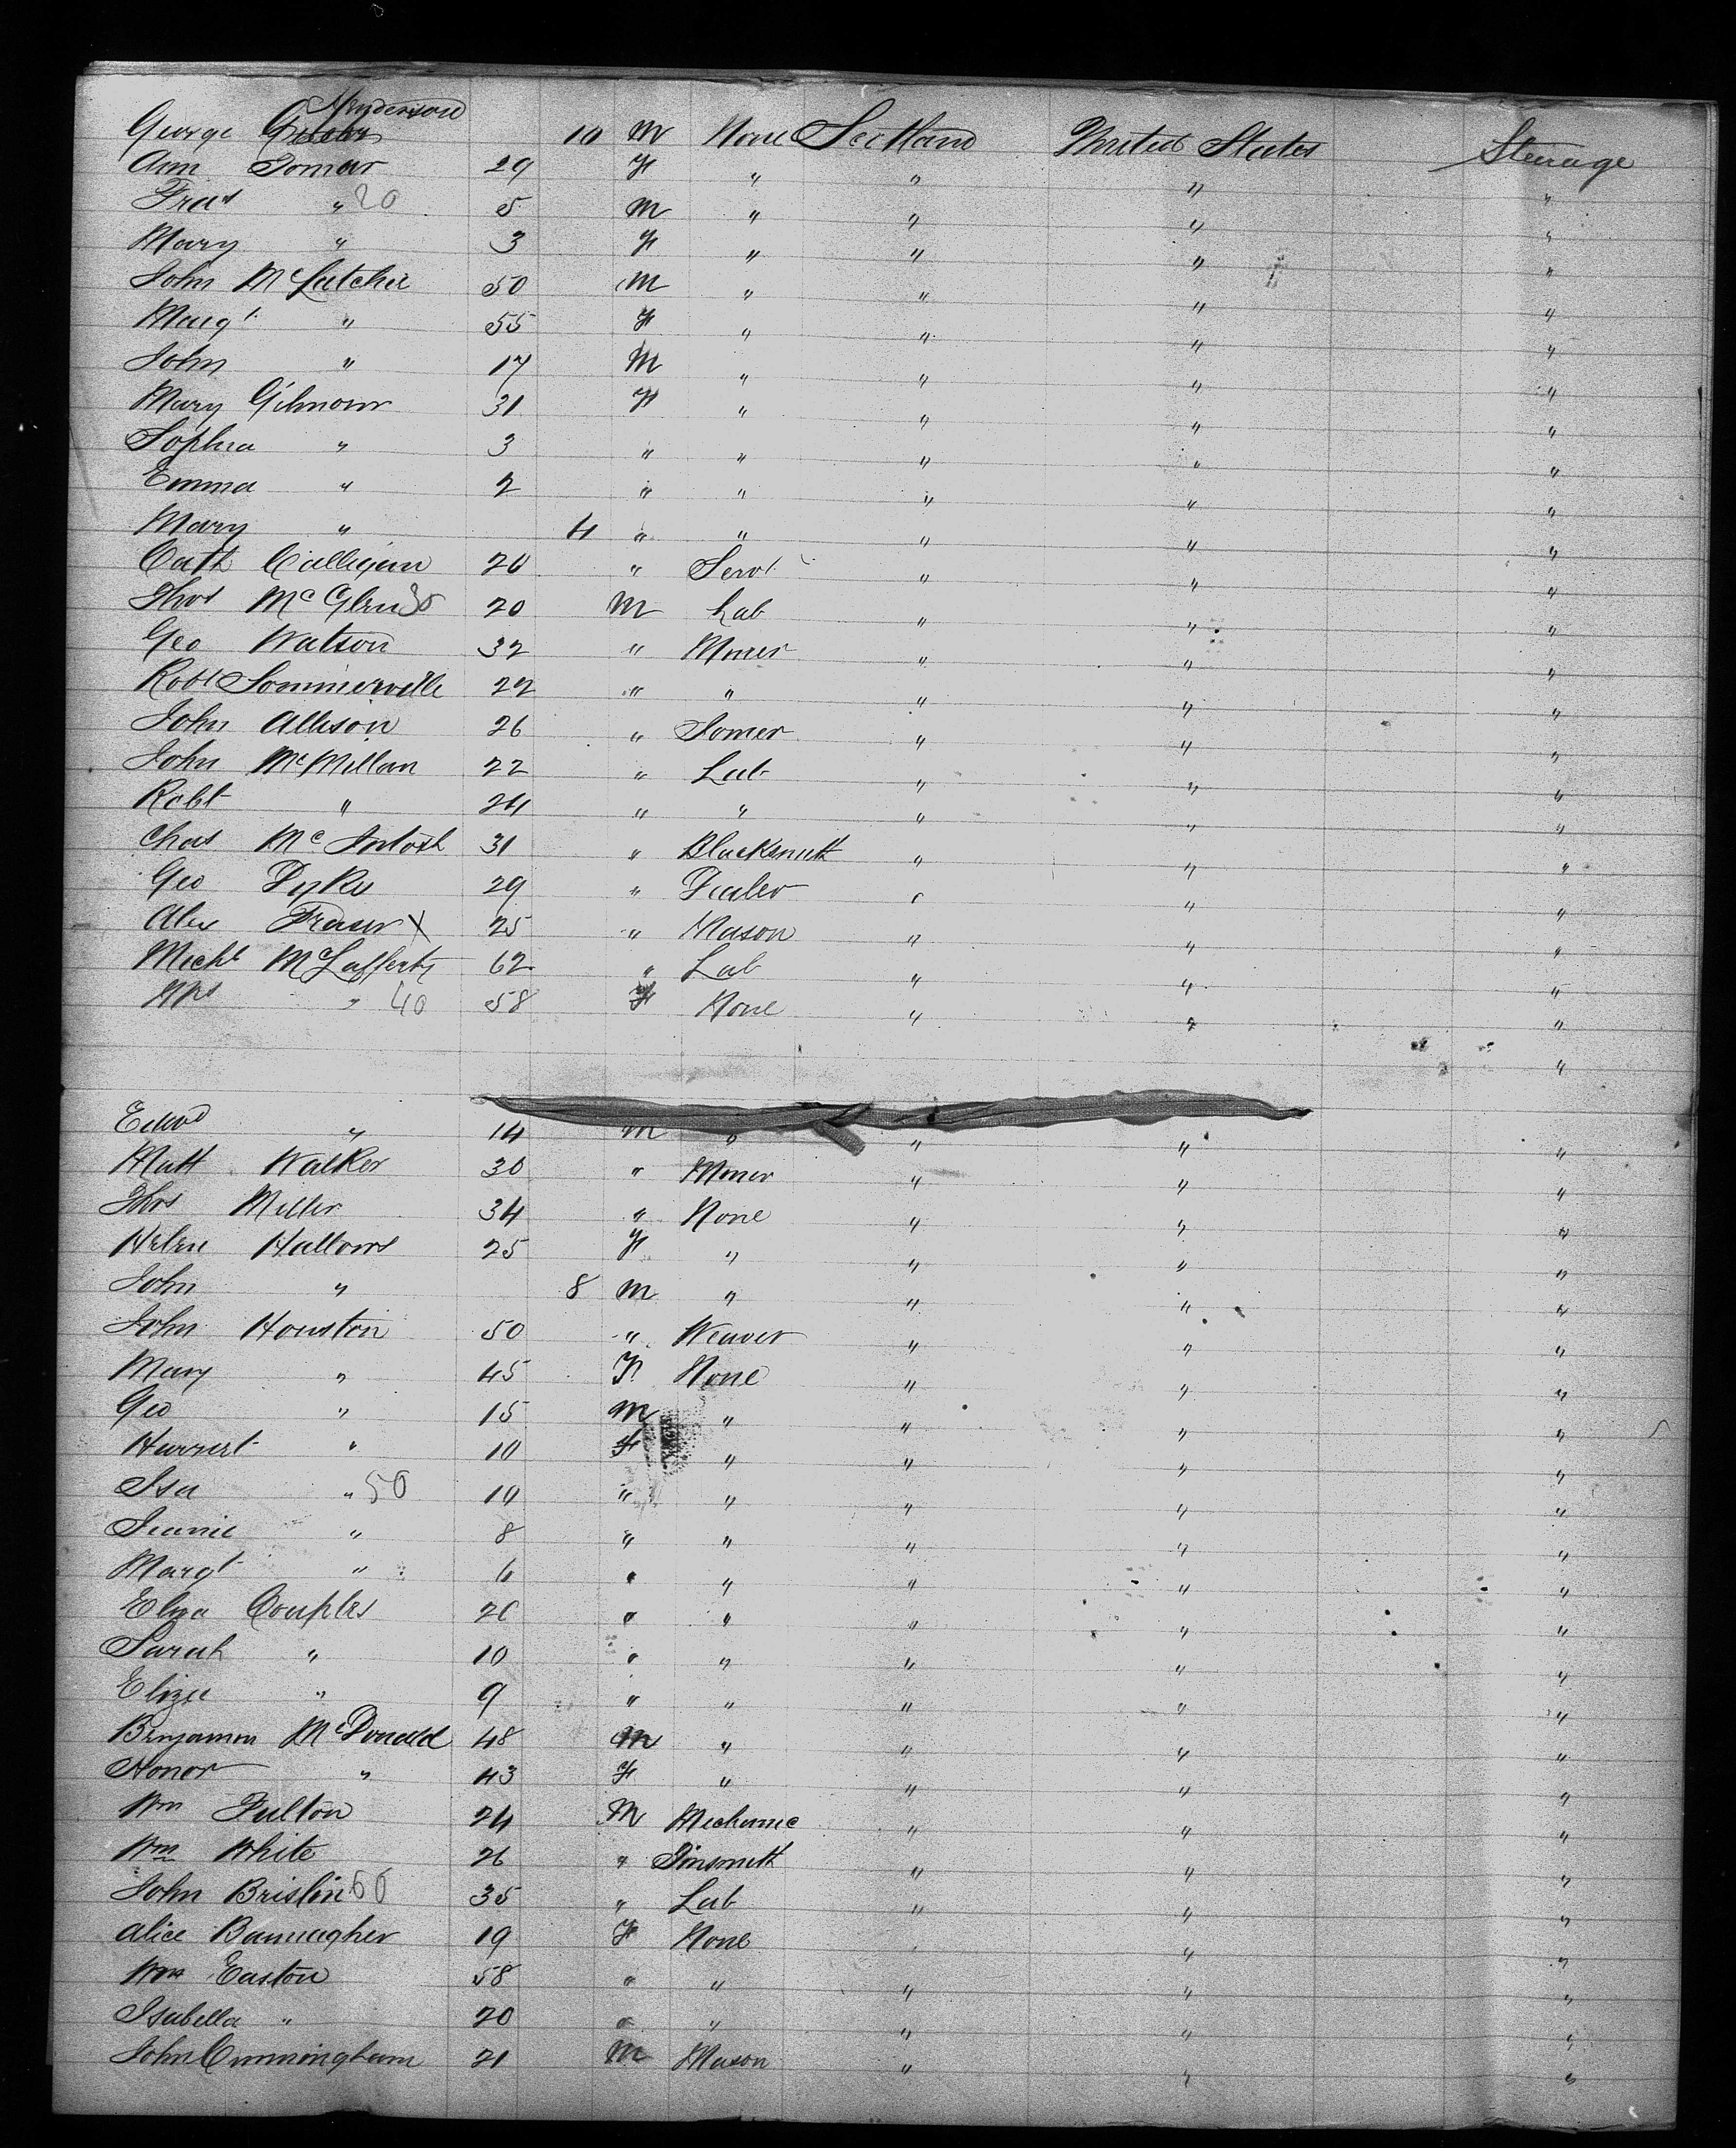 Henderson
George 10 M None Scotland United States Steerage
Ann 29 F " " " "
" 20 5 M " " " "
Mary " 3 F " " " "
John McCutchie 50 M " " " "
Margt " 55 F " " " "
John " 17 M " " " "
Mary Gilmour 31 F " " " "
Sophia " 3 " " " " "
Emma " 2 " " " " "
Mary " 4 " " " " "
Cath Calligan 20 " Servt " " "
Thos McGlen 30 20 M Lab " " "
Geo Watson 32 " Miner " " "
Robt Sommerville 22 " " " " "
John Allison 26 " " " "
John McMillan 22 " Lab " " "
Robt " 24 " " " " "
Chas McIntosh 31 " Blacksmith " " "
Geo Dyke 29 " Dealer " " "
Alex Fraser X 25 " Mason " " "
Michl McLafferty 62 " Lab " " "
Mrs " 40 58 F None " " "
"
Edwd " 14 M " " " "
Matt Walker 30 " Miner " " "
Thos Miller 34 " None " " "
Helen Hallows 25 F " " " "
John " 8 M " " " "
John Houston 50 " Weaver " " "
Mary " 45 F None " " "
Geo " 15 M " " " "
Harriet " 10 F " " " "
Isa " 50 10 " " " " "
Jeanie " 8 " " " " "
Margt " 6 " " " " "
Eliza Couples 20 " " " " "
Sarah " 10 " " " " "
Eliza " 9 " " " " "
Benjamin McDonald 48 M " " " "
Honor " 43 F " " " "
Wm Fulton 24 M Mechanic " " "
Wm White 26 " Tinsmith " " "
John Brislin 60 35 " Lab " " "
Alice Bannagher 19 F None " " "
Mrs Easton 58 " " " " "
Isabella " 20 " " " " "
John Cunningham 21 M Mason " " "